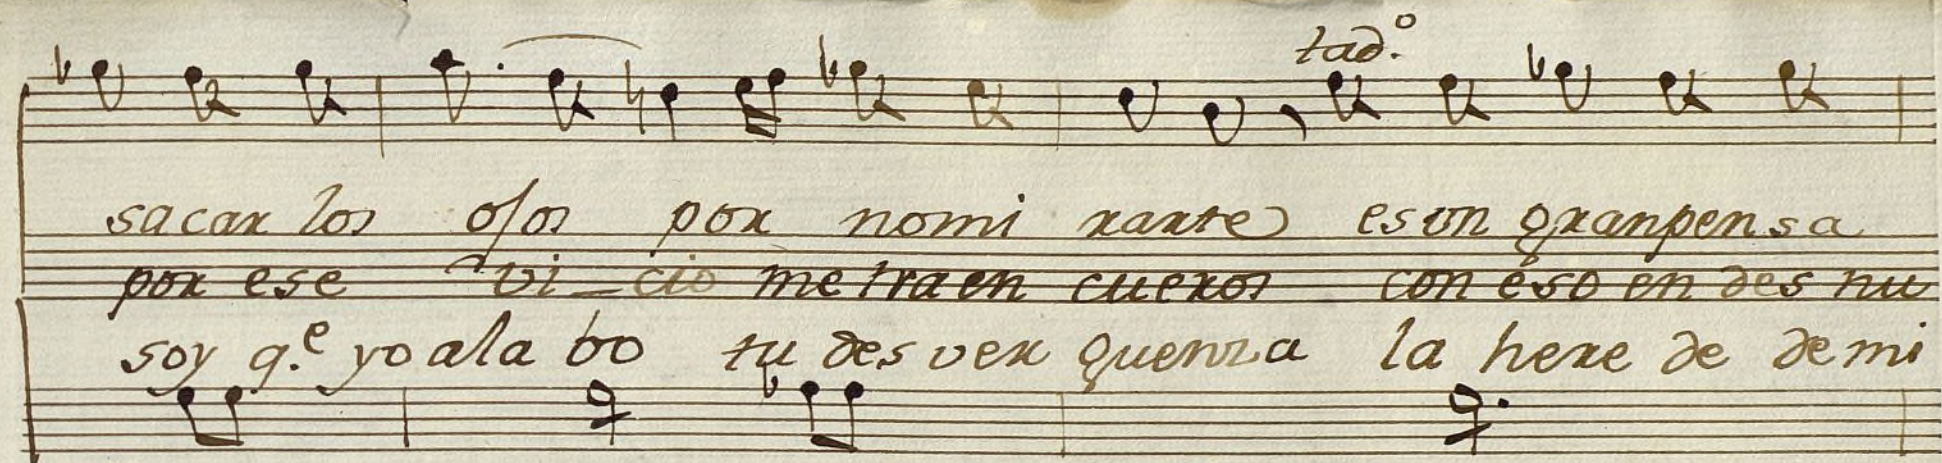 tad.º
sacar los ojos por nomi rarte es un gran pensa
por ese vi_cio me traen cueros con eso en des nu
soy q.e yo ala bo tu des ver guenza la here de demi